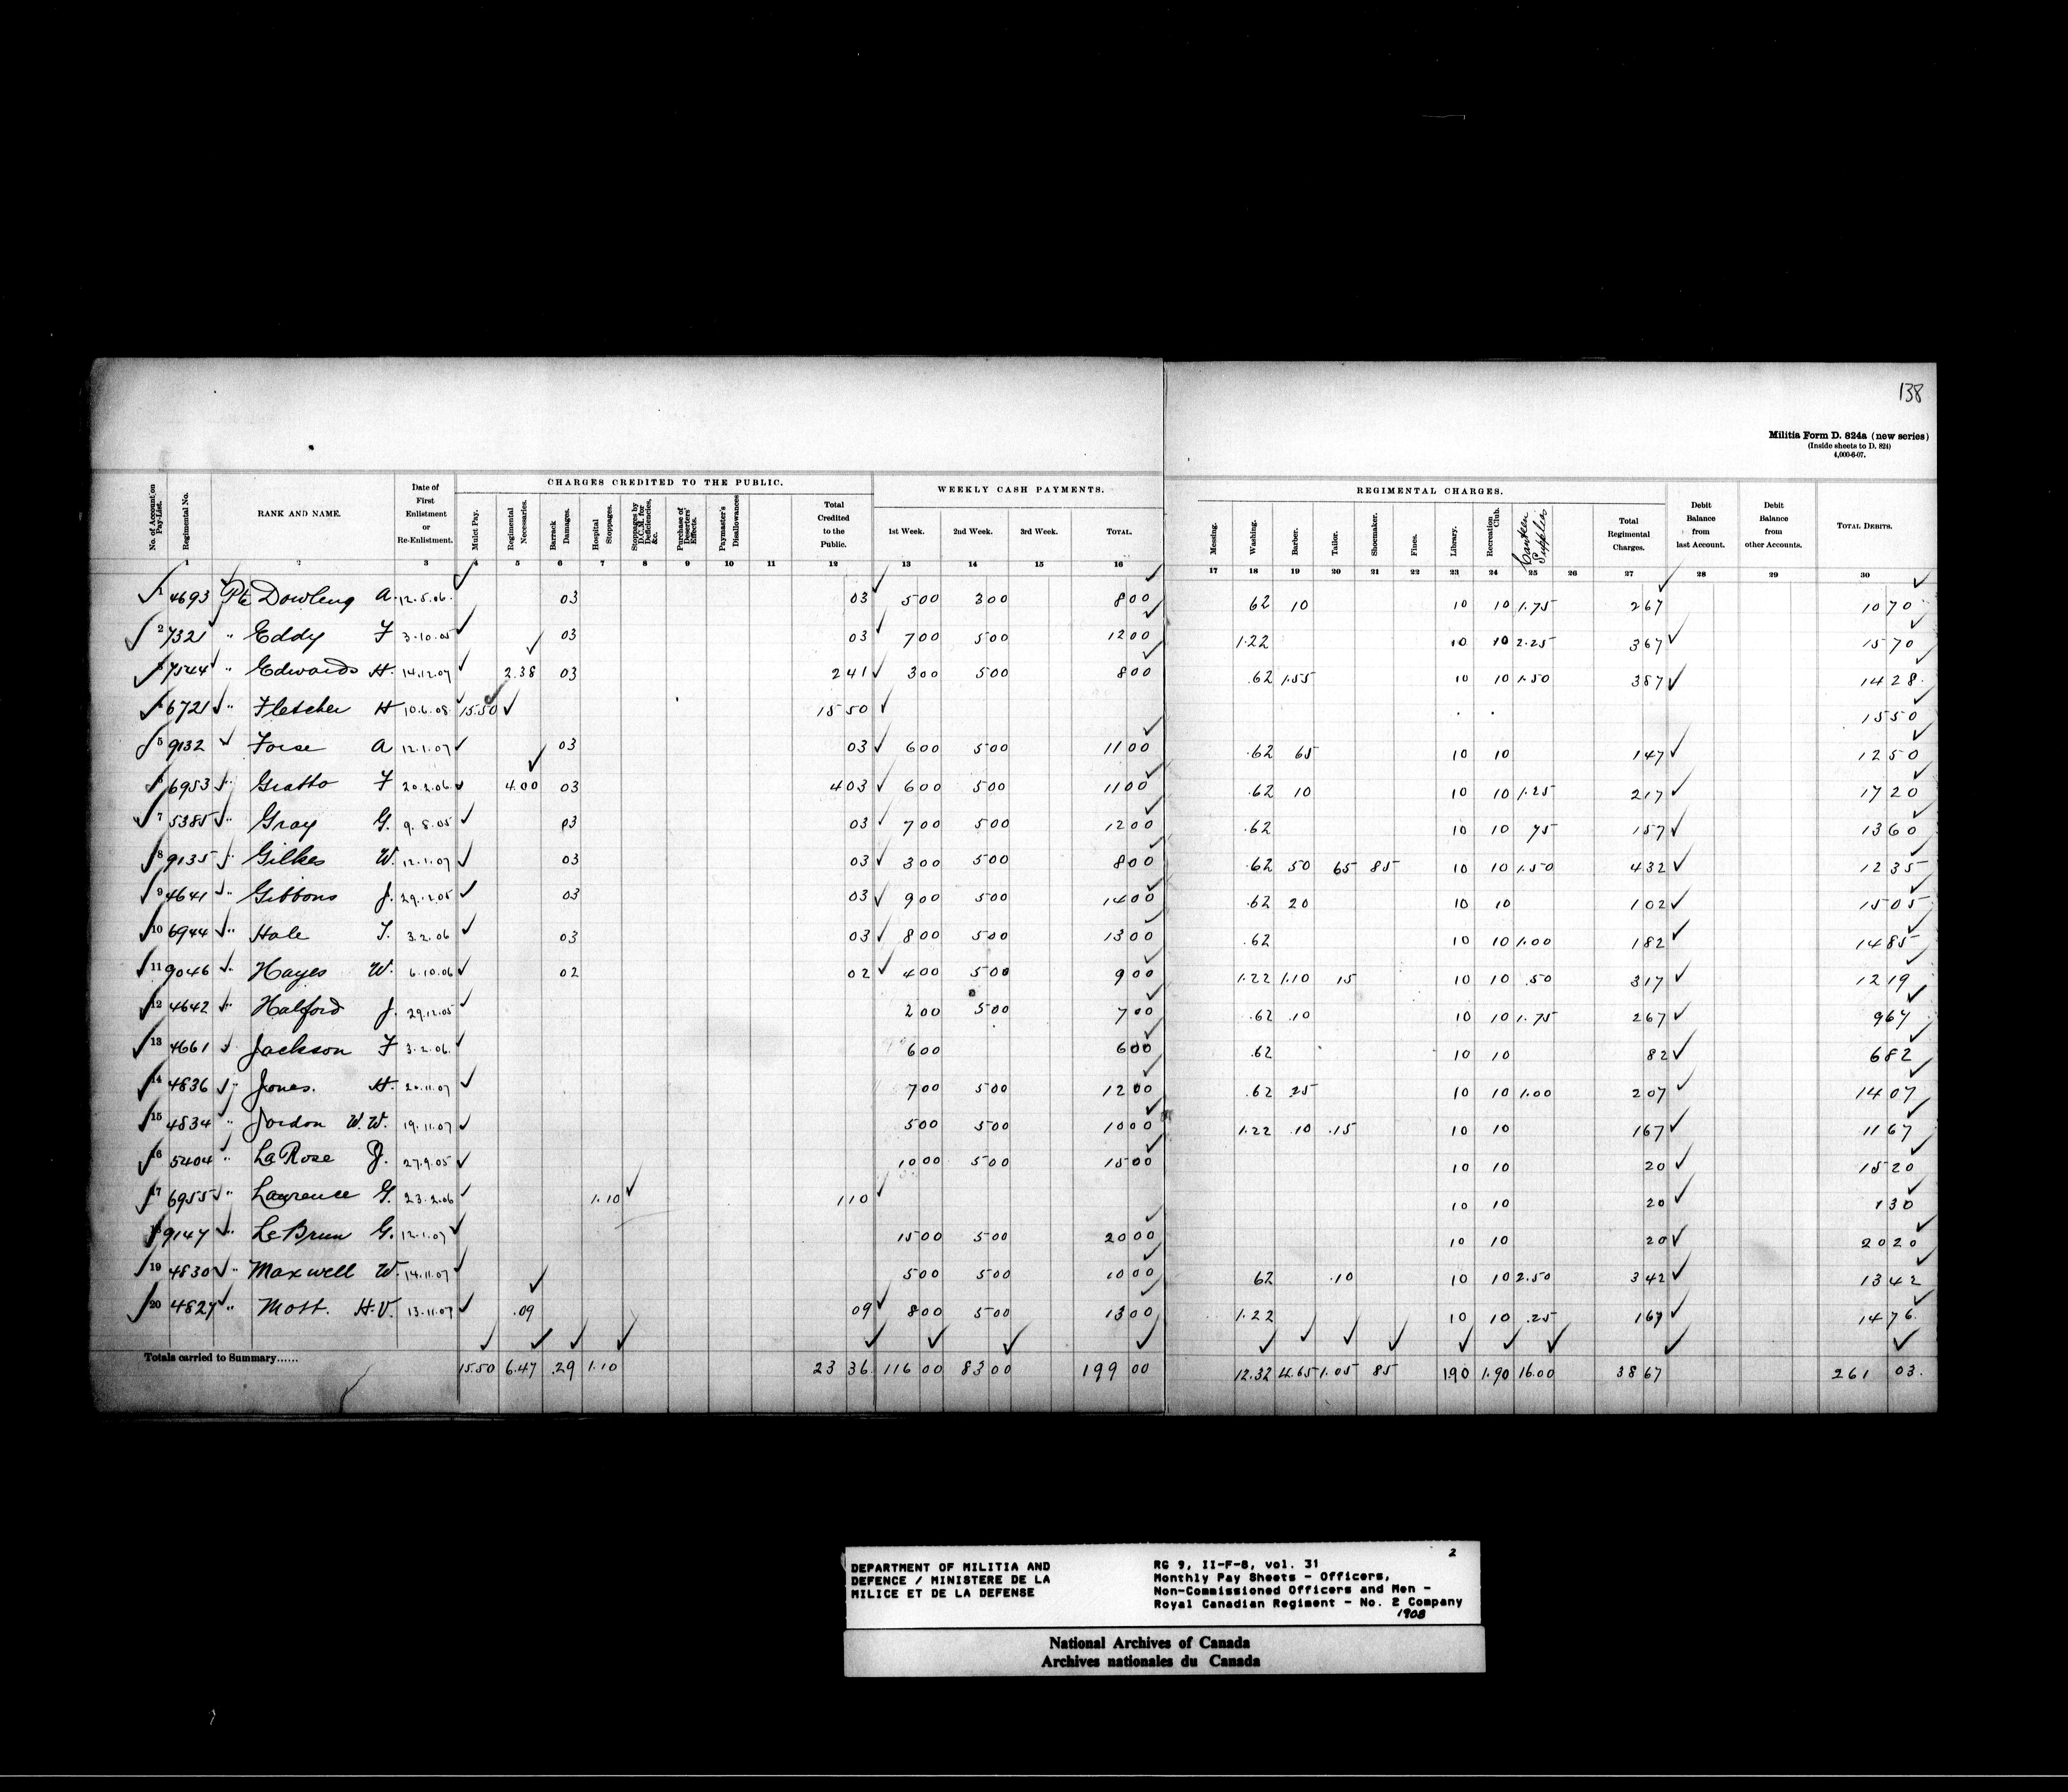 138
Militia Form D. 824a (new series)
(Inside sheets to D. 824)
4,000-6-07.
CHARGES CREDITED TO THE PUBLIC. WEEKLY CASH PAYMENTS. REGIMENTAL CHARGES.
No. of Account on Pay-List. Regimental No. RANK AND NAME. Date of First Enlistment or Re-Enlistment. Mulct Pay. Regimental Necessaries. Barrack Damages. Hospital Stoppages. Stoppages by D.C.M. for Deficiencies, &c. Purchase of Deserters' Effects. Paymaster's Disallowances Total Credited to the Public. 1st Week. 2nd Week. 3rd Week. TOTAL. Messing. Washing. Barber. Tailor. Shoemaker. Fines. Library. Recreation Club. Canteen Supplies Total Regimental Charges. Debit Balance from last Account. Debit Balance from other Accounts. TOTAL DEBITS.
1 2 3 4 5 6 7 8 9 10 11 12 13 14 15 16 17 18 19 20 21 22 23 24 25 26 27 28 29 30
1 4693 Pte Dowling A. 12.5.06. 03 03 500 300 800 62 10 10 10 1.75 267 1070
2 7321 " Eddy F 3.10.05 03 03 700 500 1200 1.22 10 10 2.25 367 1570
3 7544 " Edwards H. 14.12.07 2.38 03 241 300 500 800 .62 1.55 10 10 1.50 387 1428.
4 6721 " Fletcher H 10.6.08 15.50 1550 1550
5 9132 " Forse A 12.1.07 03 03 600 500 1100 .62 65 10 10 147 1250
6 6953 " Gratto F 20.2.06 4.00 03 403 600 500 1100 .62 10 10 10 1.25 217 1720
7 5385 " Gray G. 9.8.05 03 03 700 500 1200 .62 10 10 75 157 1360
8 9135 " Gilkes W. 12.1.07 03 03 300 500 800 .62 50 65 85 10 10 1.50 432 1235
9 4641 " Gibbons J. 29.12.05 03 03 900 500 1400 .62 20 10 10 102 1505
10 6944 " Hale T. 3.2.06 03 03 800 500 1300 .62 10 10 1.00 182 1485
11 9046 " Hayes W. 6.10.06 02 02 400 500 900 1.22 1.10 15 10 10 .50 317 1219
12 4642 " Halford J. 29.12.05 200 500 700 .62 .10 10 10 1.75 267 967
13 4661 " Jackson F 3.2.06. 600 600 .62 10 10 82 682
14 4836 " Jones. H. 20.11.07 700 500 1200 .62 25 10 10 1.00 207 1407
15 4834 " Jordon W.W. 19.11.07 500 500 1000 1.22 .10 .15 10 10 167 1167
16 5404 " LaRose J. 27.9.05 1000 500 1500 10 10 20 1520
17 6955 " Lawrence G. 23.2.06 1.10 110 10 10 20 130
18 9147 " LeBrun G. 12.1.07 1500 500 2000 10 10 20 2020
19 4830 " Maxwell W. 14.11.07 500 500 1000 62 .10 10 10 2.50 342 1342
20 4827 " Mott. H.V. 13.11.07 .09 09 800 500 1300 1.22 10 10 .25 167 1476.
Totals carried to Summary...... 15.50 6.47 .29 1.10 23 36 116 00 83 00 199 00 12.32 4.65 1.05 85 1.90 1.90 16.00 38 67 261 03.
2
DEPARTMENT OF MILITIA AND
DEFENCE / MINISTERE DE LA
MILICE ET DE LA DEFENSE
RG 9, II-F-8, vol. 31
Monthly Pay Sheets - Officers,
Non-Commissioned Officers and Men -
Royal Canadian Regiment - No. 2 Company
1908
National Archives of Canada
Archives nationales du Canada